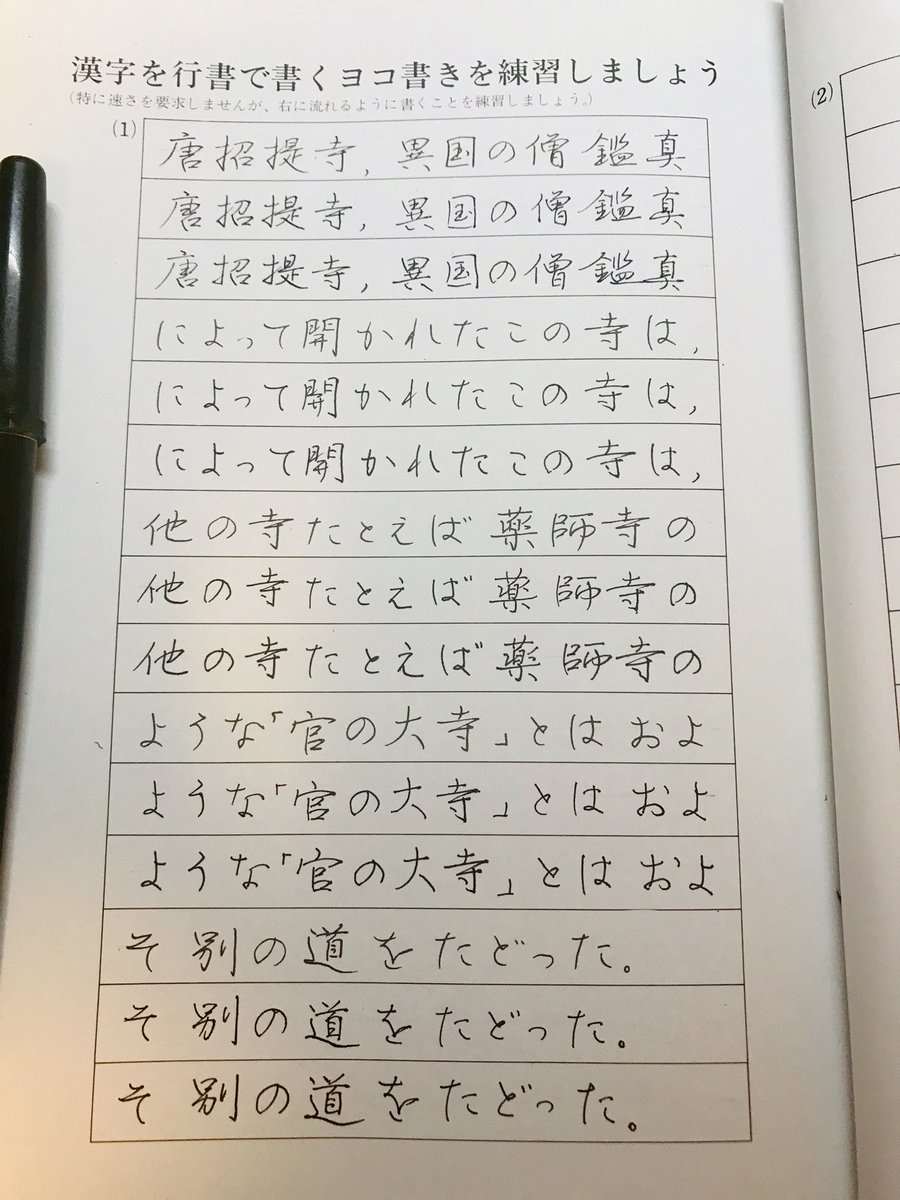 漢字を行書で書くヨコ書きを練習しましょう
（特に速さを要求しませんが、右に流れるように書くことを練習しましょう。）
(1)
唐招提寺,異国の僧鑑真
唐招提寺,異国の僧鑑真
唐招提寺,異国の僧鑑真
によって開かれたこの寺は,
によって開かれたこの寺は,
によって開かれたこの寺は,
他の寺たとえば薬師寺の
他の寺たとえば薬師寺の
他の寺たとえば薬師寺の
ような「官の大寺」とはおよ
ような「官の大寺」とはおよ
ような「官の大寺」とはおよ
そ別の道をたどった。
そ別の道をたどった。
そ別の道をたどった。
(2)